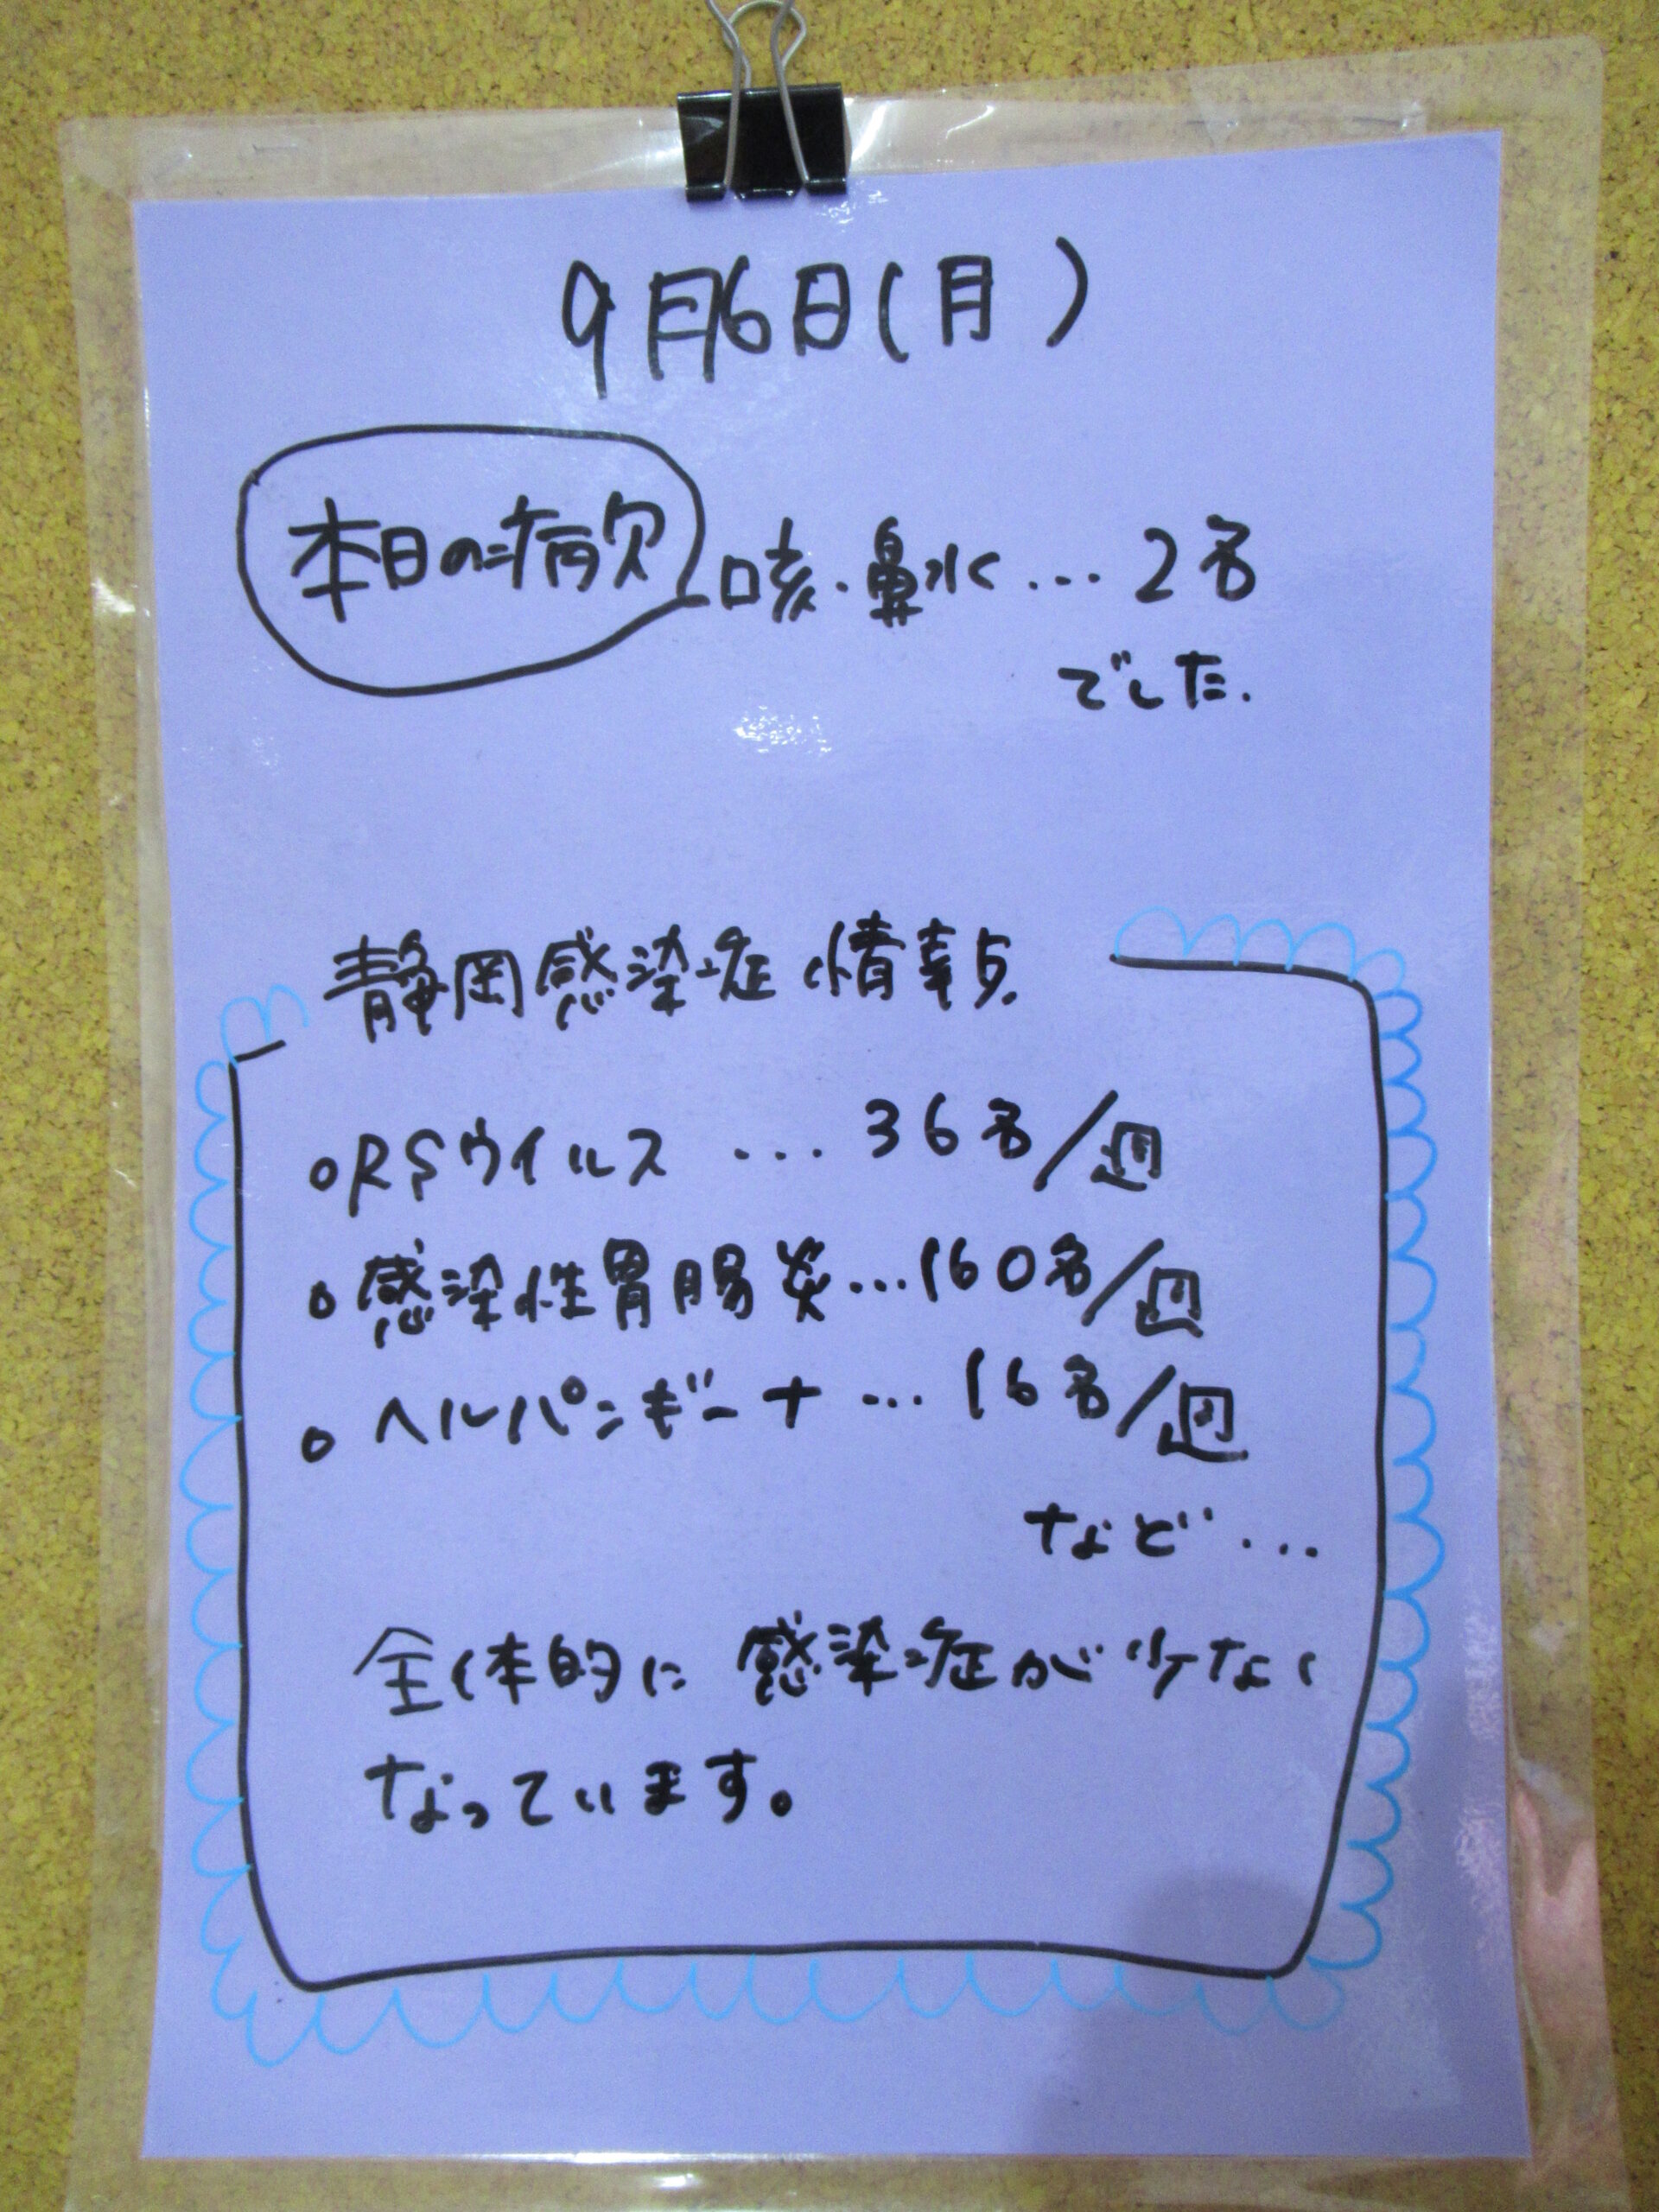 9月6日(月)
本日の病欠 咳・鼻水...2名
でした.
静岡感染症情報
○RSウイルス ...36名/週
○感染性胃腸炎...160名/週
○ヘルパンギーナ...16名/週
など...
全体的に感染症が少なく
なっています。